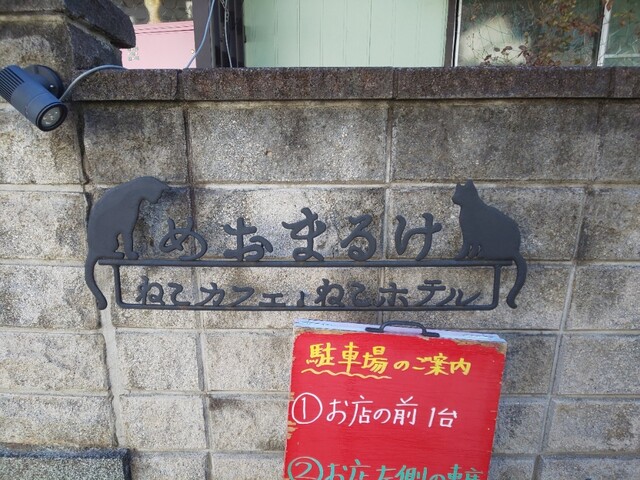 めおまるけ
ねこカフェ&ねこホテル
駐車場のご案内
①お店の前1台
②お店左側の車庫